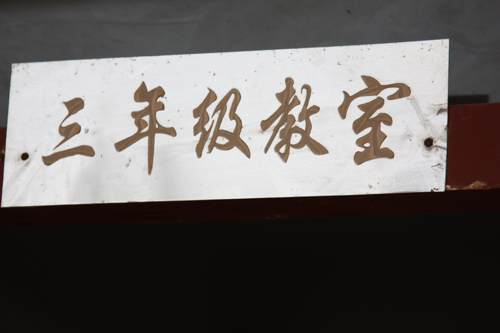 三年级教室